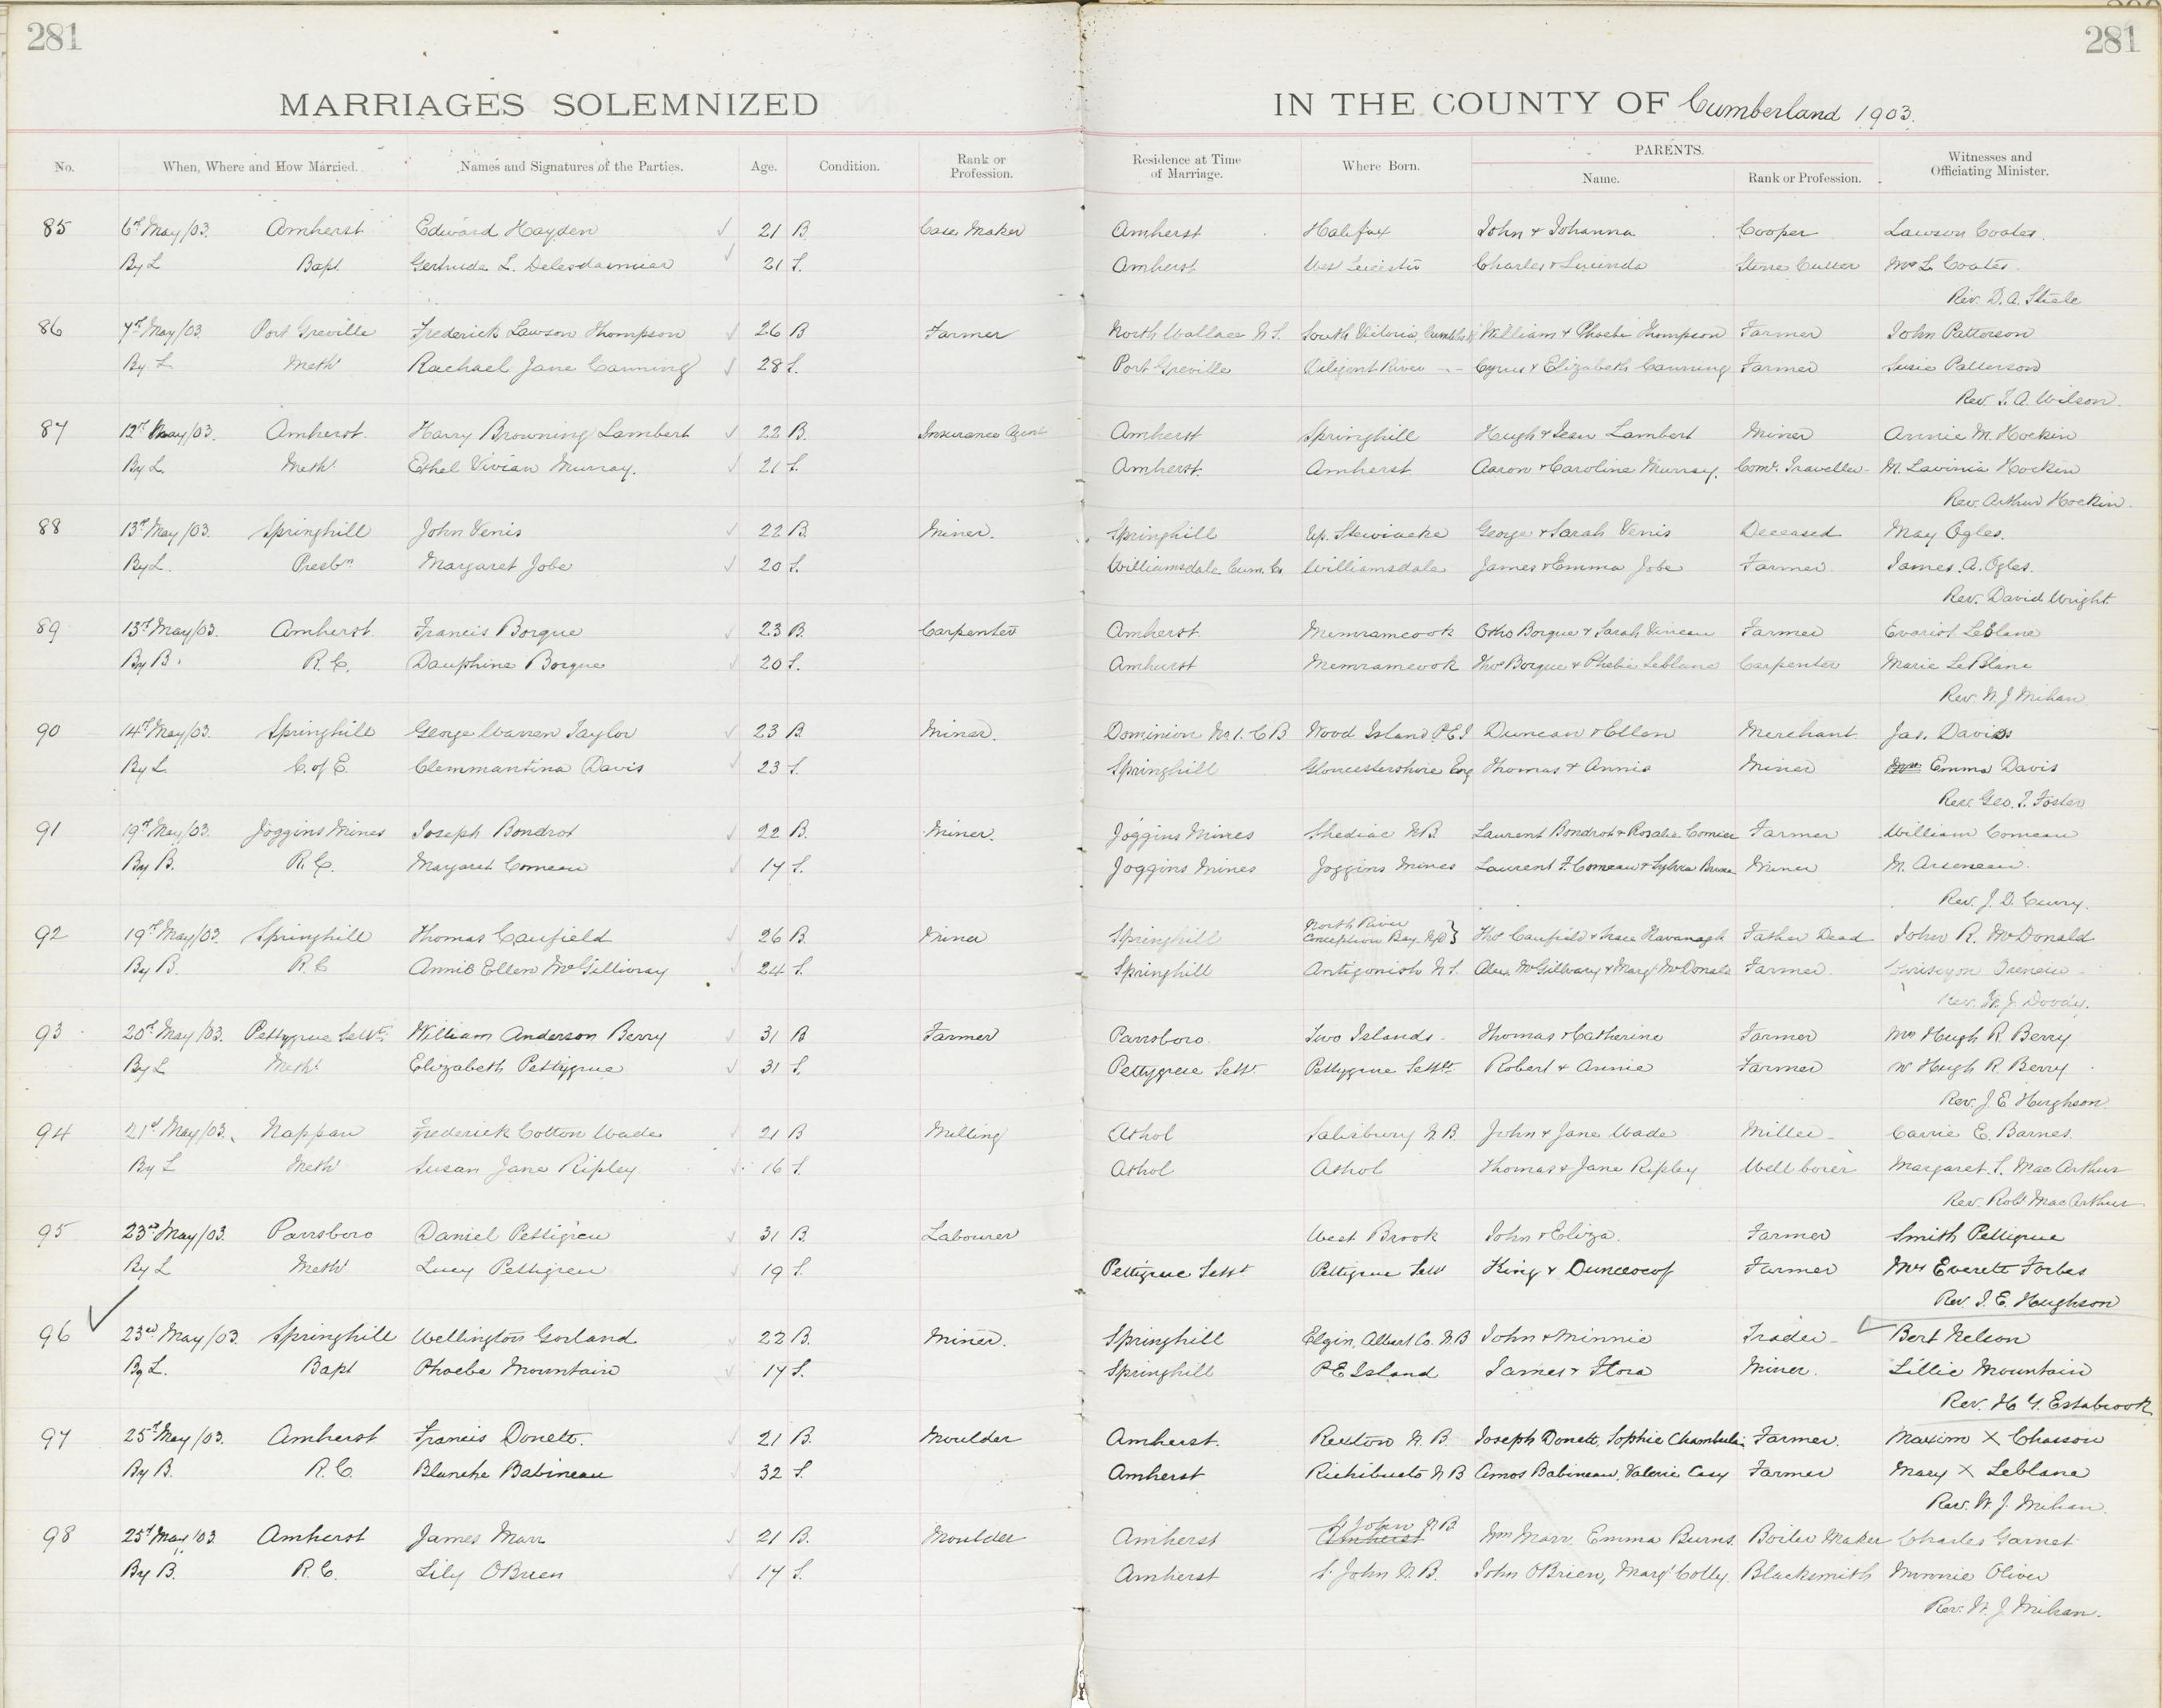 281
281
MARRIAGES SOLEMNIZED IN THE COUNTY OF Cumberland 1903.
No. When, Where and How Married. Names and Signatures of the Parties. Age. Condition. Rank or Profession. Residence at Time of Marriage. Where Born. PARENTS. Name. Rank or Profession. Witnesses and Officiating Minister.
85 6th May/03. Amherst Edward Hayden 21 B. Case Maker Amherst Halifax John & Johanna Cooper Lawson Coates
By L Bapt Gertrude L. Delesdarnier 21 S. Amherst West Leicester Charles & Lucinda Stone Cutter Mrs L. Coates
Rev. D. A. Steele
86 7th May/03. Port Greville Frederick Lawson Thompson 26 B Farmer North Wallace N.S. South Victoria, William & Phoebe Thompson Farmer John Patterson
By L Meth Rachael Jane Canning 28 S. Port Greville Diligent River Cyrus & Elizabeth Canning Farmer Susie Patterson
Rev. J. A. Wilson.
87 12th May/03. Amherst. Harry Browning Lambert 22 B. Insurance Agent Amherst Springhill Hugh & Jean Lambert Miner Annie M. Hockin
By L. Meth Ethel Vivian Murray. 21 S. Amherst. Amherst Aaron & Caroline Murray. Coml. Traveller M. Lavinia Hockin
Rev. Arthur Hockin.
88 13th May/03. Springhill John Venis 22 B. Miner. Springhill Up. Stewiacke George & Sarah Venis Deceased May Ogles.
By L. Presbn Margaret Jobe 20 S. Williamsdale Cum. Co. Williamsdale James & Emma Jobe Farmer James. A. Ogles.
Rev. David Wright.
89 13th May/03. Amherst. Francis Borque 23 B. Carpenter Amherst. Memramcook Otho Borque & Sarah Farmer Evarist LeBlanc
By B. R.C. Dauphine Borque 20 S. Amhurst Memramcook Thos Borque & Phebie Leblanc Carpenter Marie LeBlanc
Rev. W. J. Mihan
90 14th May/03. Springhill George Warren Taylor 23 B. Miner. Dominion No 1. C B Wood Island P.E.I Duncan & Ellen Merchant Jas. Davis
By L C. of E. Clemmantina Davis 23 S. Springhill Gloucestershire Eng Thomas & Annie Miner Emma Davis
Rev. Geo. T. Foster
91 19th May/03. Joggins Mines Joseph Bondrot 22 B. Miner. Joggins Mines Shediac N.B. Laurent Bondrot & Rosalie Comier Farmer William Comeau
By B. R.C. Margaret Comeau 17 S. Joggins Mines Joggins Mines Laurent F. Comeau & Sylvia Miner M. Arseneau.
Rev. J. D. Curry.
92 19th May/03. Springhill Thomas Caufield 26 B. Miner Springhill North River Conception Bay Nfd } Thos Caufield & Grace Kavanagh Father Dead John R. McDonald
By B. R.C Annie Ellen McGillivray 24 S. Springhill Antigonish N.S. Alex. McGillivary & Margt McDonald Farmer.
Rev. W. J. Doody.
93 20th May/03. Pettygrue Settt William Anderson Berry 31 B Farmer Parrsboro. Two Islands. Thomas & Catherine Farmer Mrs Hugh R. Berry
By L Meth Elizabeth Pettygrue 31 S. Pettygrue Settt Pettygrue Settt Robert & Annie Farmer Mr Hugh R. Berry
Rev. J. E. Hughson.
94 21st May/03. Nappan Frederick Cotton Wade 21 B Milling Athol Salisbury N.B. John & Jane Wade Miller Carrie E. Barnes.
By L Meth Susan Jane Ripley 16 S. Athol Athol Thomas & Jane Ripley Well borer Margaret. S. MacArthur
Rev. Robt MacArthur
95 23rd May/03. Parrsboro Daniel Pettigreu 31 B. Labourer West Brook John & Eliza. Farmer Smith Pettigrue
By L Meth Lucy Pettigreu 19 S. Pettigrue Settt Pettigrue Sett King & Farmer Mrs Everett Forbes
Rev. J. E. Hughson
96 23rd May/03. Springhill Wellington Gorland 22 B. Miner. Springhill Elgin, Albert Co. N.B John & Minnie Trader Bert Nelson
By L. Bapt Phoebe Mountain 17 S. Springhill P E Island James & Flora Miner. Lillie Mountain
Rev. H. Y. Estabrook
97 25th May/03. Amherst Francis Donett. 21 B. Moulder Amherst. Rexton N. B. Joseph Donett, Sophie Chamberlain Farmer. Maxim X Chasson
By B. R.C. Blanche Babineau 32 S. Amherst Richibucto N B Amos Babineau, Valerie Casy Farmer Mary X Leblanc
Rev. W. J. Mihan.
98 25th May/03. Amherst James Marr 21 B. Moulder Amherst St John N.B Amherst Wm Marr. Emma Burns. Boiler Maker Charles Garnet
By B. R.C. Lily OBrien 17 S. Amherst St John N.B. John OBrien, Margt Colly. Blacksmith Minnie Oliver
Rev. W. J. Mihan.